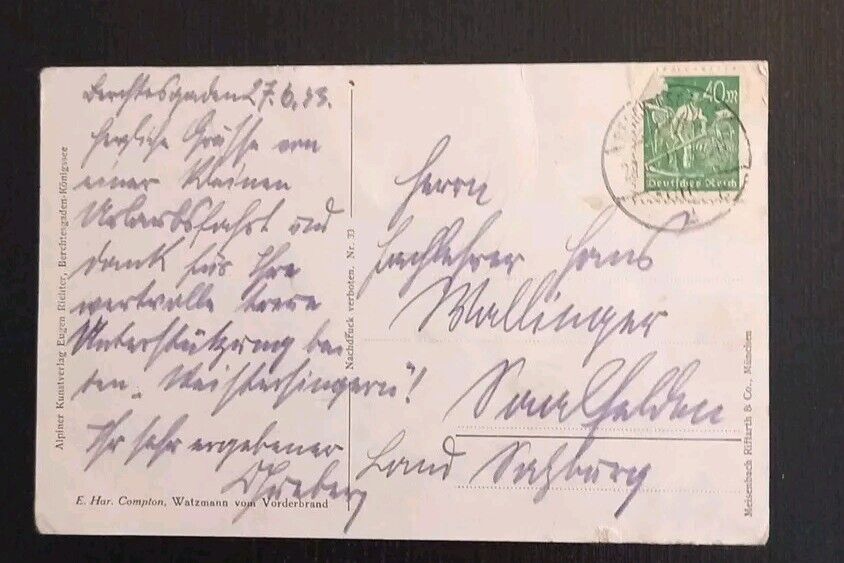 Berchtesgaden 27.6.23.
Herzliche Grüsse von
einer kleinen
Urlaubsfahrt und
Dank für Ihre
wertvolle treue
Unterstützung bei
den „Meistersingern“!
Ihr sehr ergebener
E. Har. Compton, Watzmann vom Vorderbrand
Alpiner Kunstverlag Eugen Richter, Berchtesgaden-Königssee
Nachdruck verboten. Nr. 33
40 M
Deutsches Reich
Herrn
Fachlehrer Hans
Wallinger
Saalfelden
Land Salzburg
Meisenbach Riffarth & Co., München